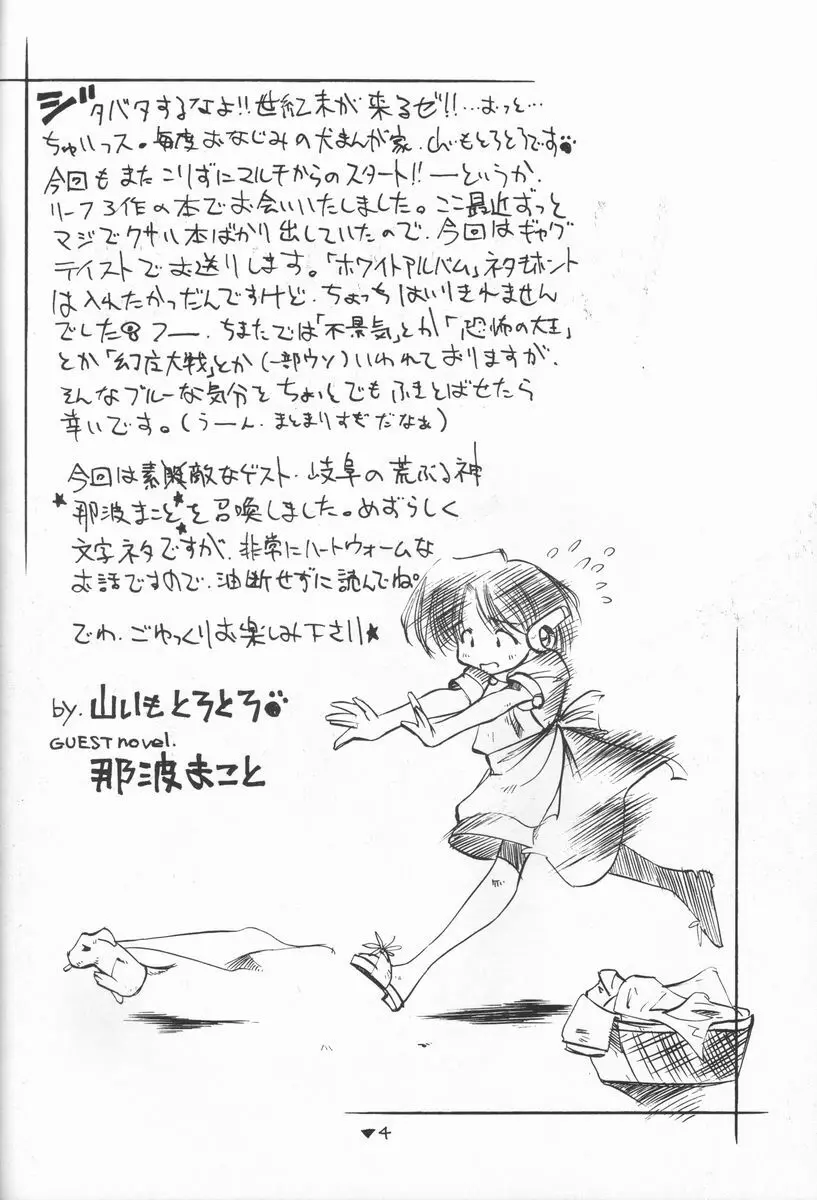 ジタバタするなよ!!世紀末が来るゼ!!…おっと…
ちゅいっス。毎度おなじみの犬まんが家、山いもとろとろです
今回もまたこりずにマルチからのスタート!!ーというか、
リーフ3作の本でお会いいたしました。ここ最近ずっと
マジでクサい本ばかり出していたので、今回はギャグ
テイストでお送りします。「ホワイトアルバム」ネタもホント
は入れたかっだんですけど、ちょっちはいりきれません
でした フー、ちまたでは「不景気」とか「恐怖の大王」
とか「幻庄大戦」とか(一部ウソ)いわれておりますが、
そんなブルーな気分をちょいとでもふきとばせたら
幸いです。(うーん、まとまりすぎだなぁ)
今回は素敵なゲスト、岐阜の荒ぶる神
★那波まこと★を召喚しました。めずらしく
文字ネタですが、非常にハートウォームな
お話ですので、油断せずに読んでね。
でわ、ごゆっくりお楽しみ下さい★
by. 山いもとろとろ
GUEST novel.
那波まこと
▼4